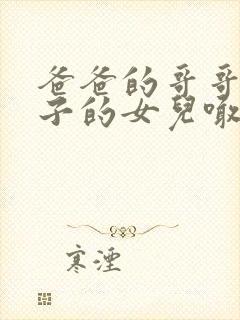 爸爸的哥哥
子的女兒噉
寒湮